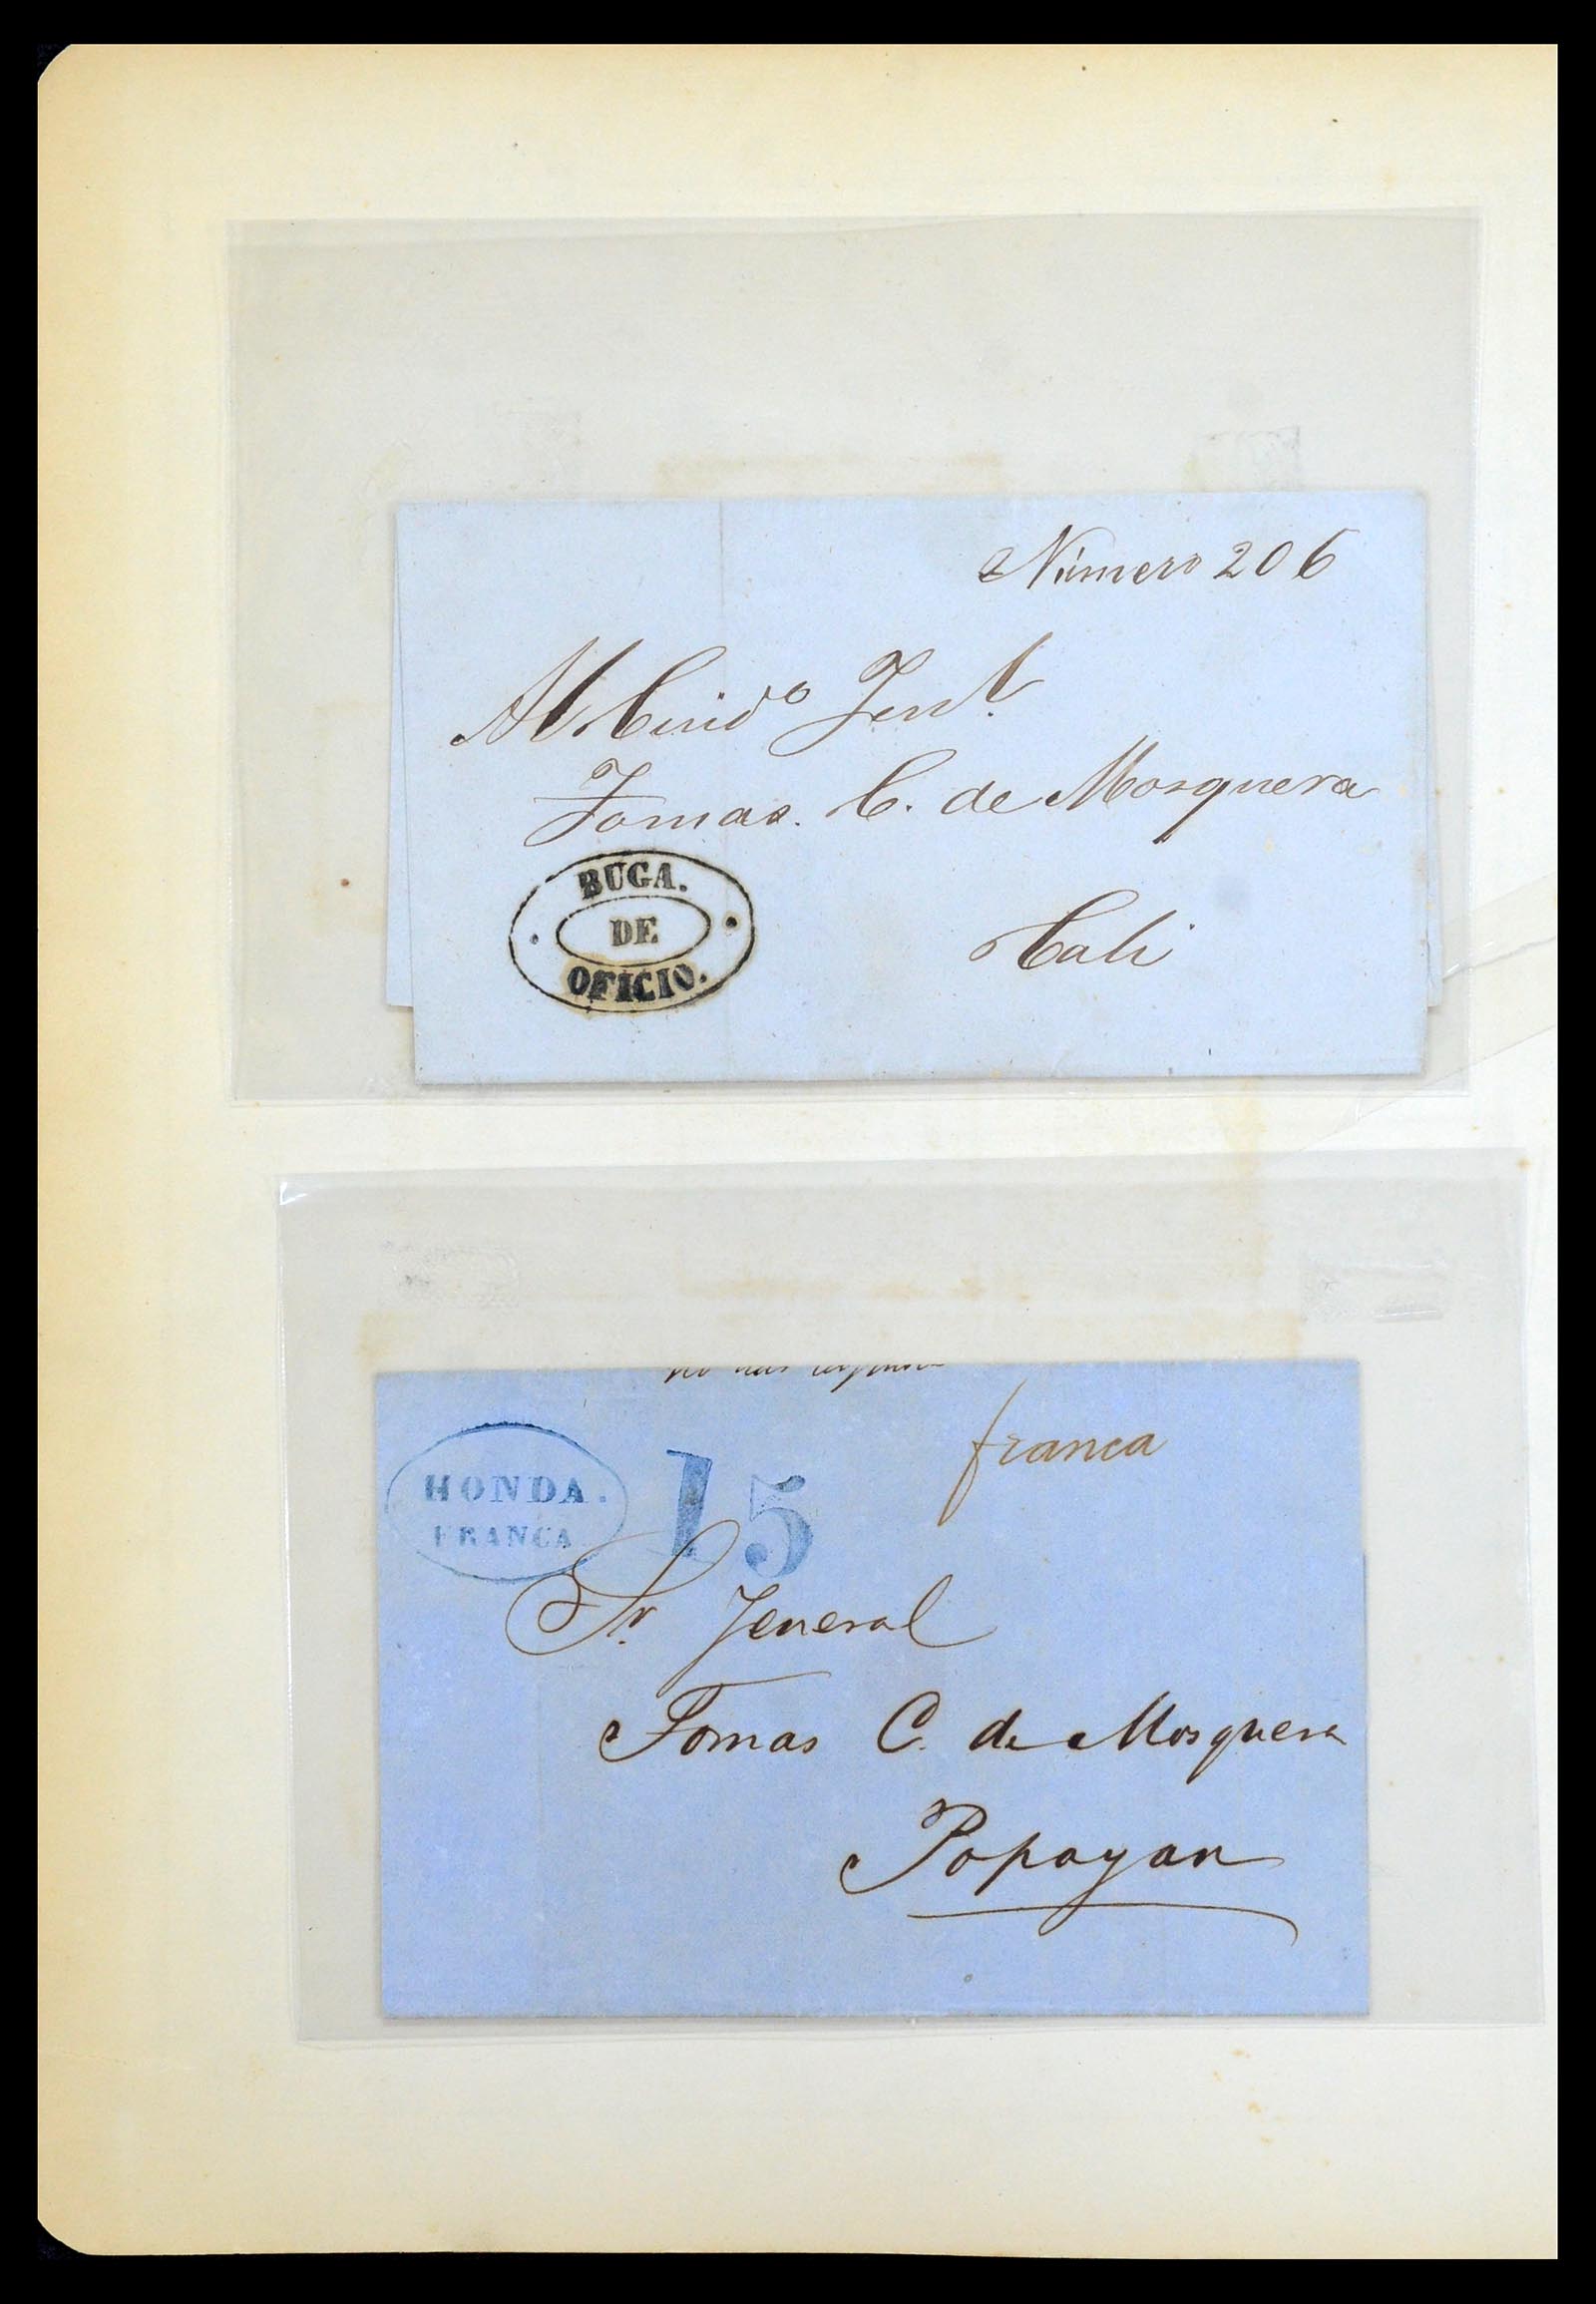 Número 206
Al Ciud° Jenl.
Tomas. C. de Mosquera
BUGA.
DE
OFICIO.
Cali
franca
HONDA.
FRANCA
15
Sr. Jeneral
Tomas C. de Mosquera
Popayan